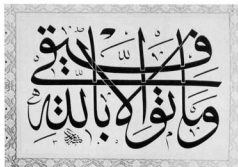 وما توفيقي إلا بالله